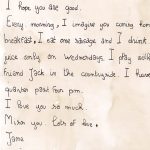 I hope you are good.
Every morning, I imagine you coming from
breakfast, I eat one sausage and I drink
juice only on Wednesdays. I play
friend Jack in the countryside. I have
quarter past four pm.
I love you so much.
Miss you. Lots of love,
Jane